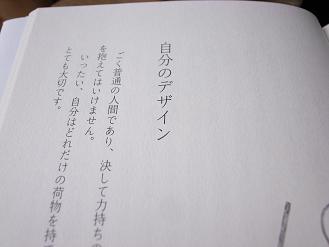 自分のデザイン
ごく普通の人間であり、決して力持ちの
を抱えてはいけません。
いったい、自分はどれだけの荷物を持
とても大切です。